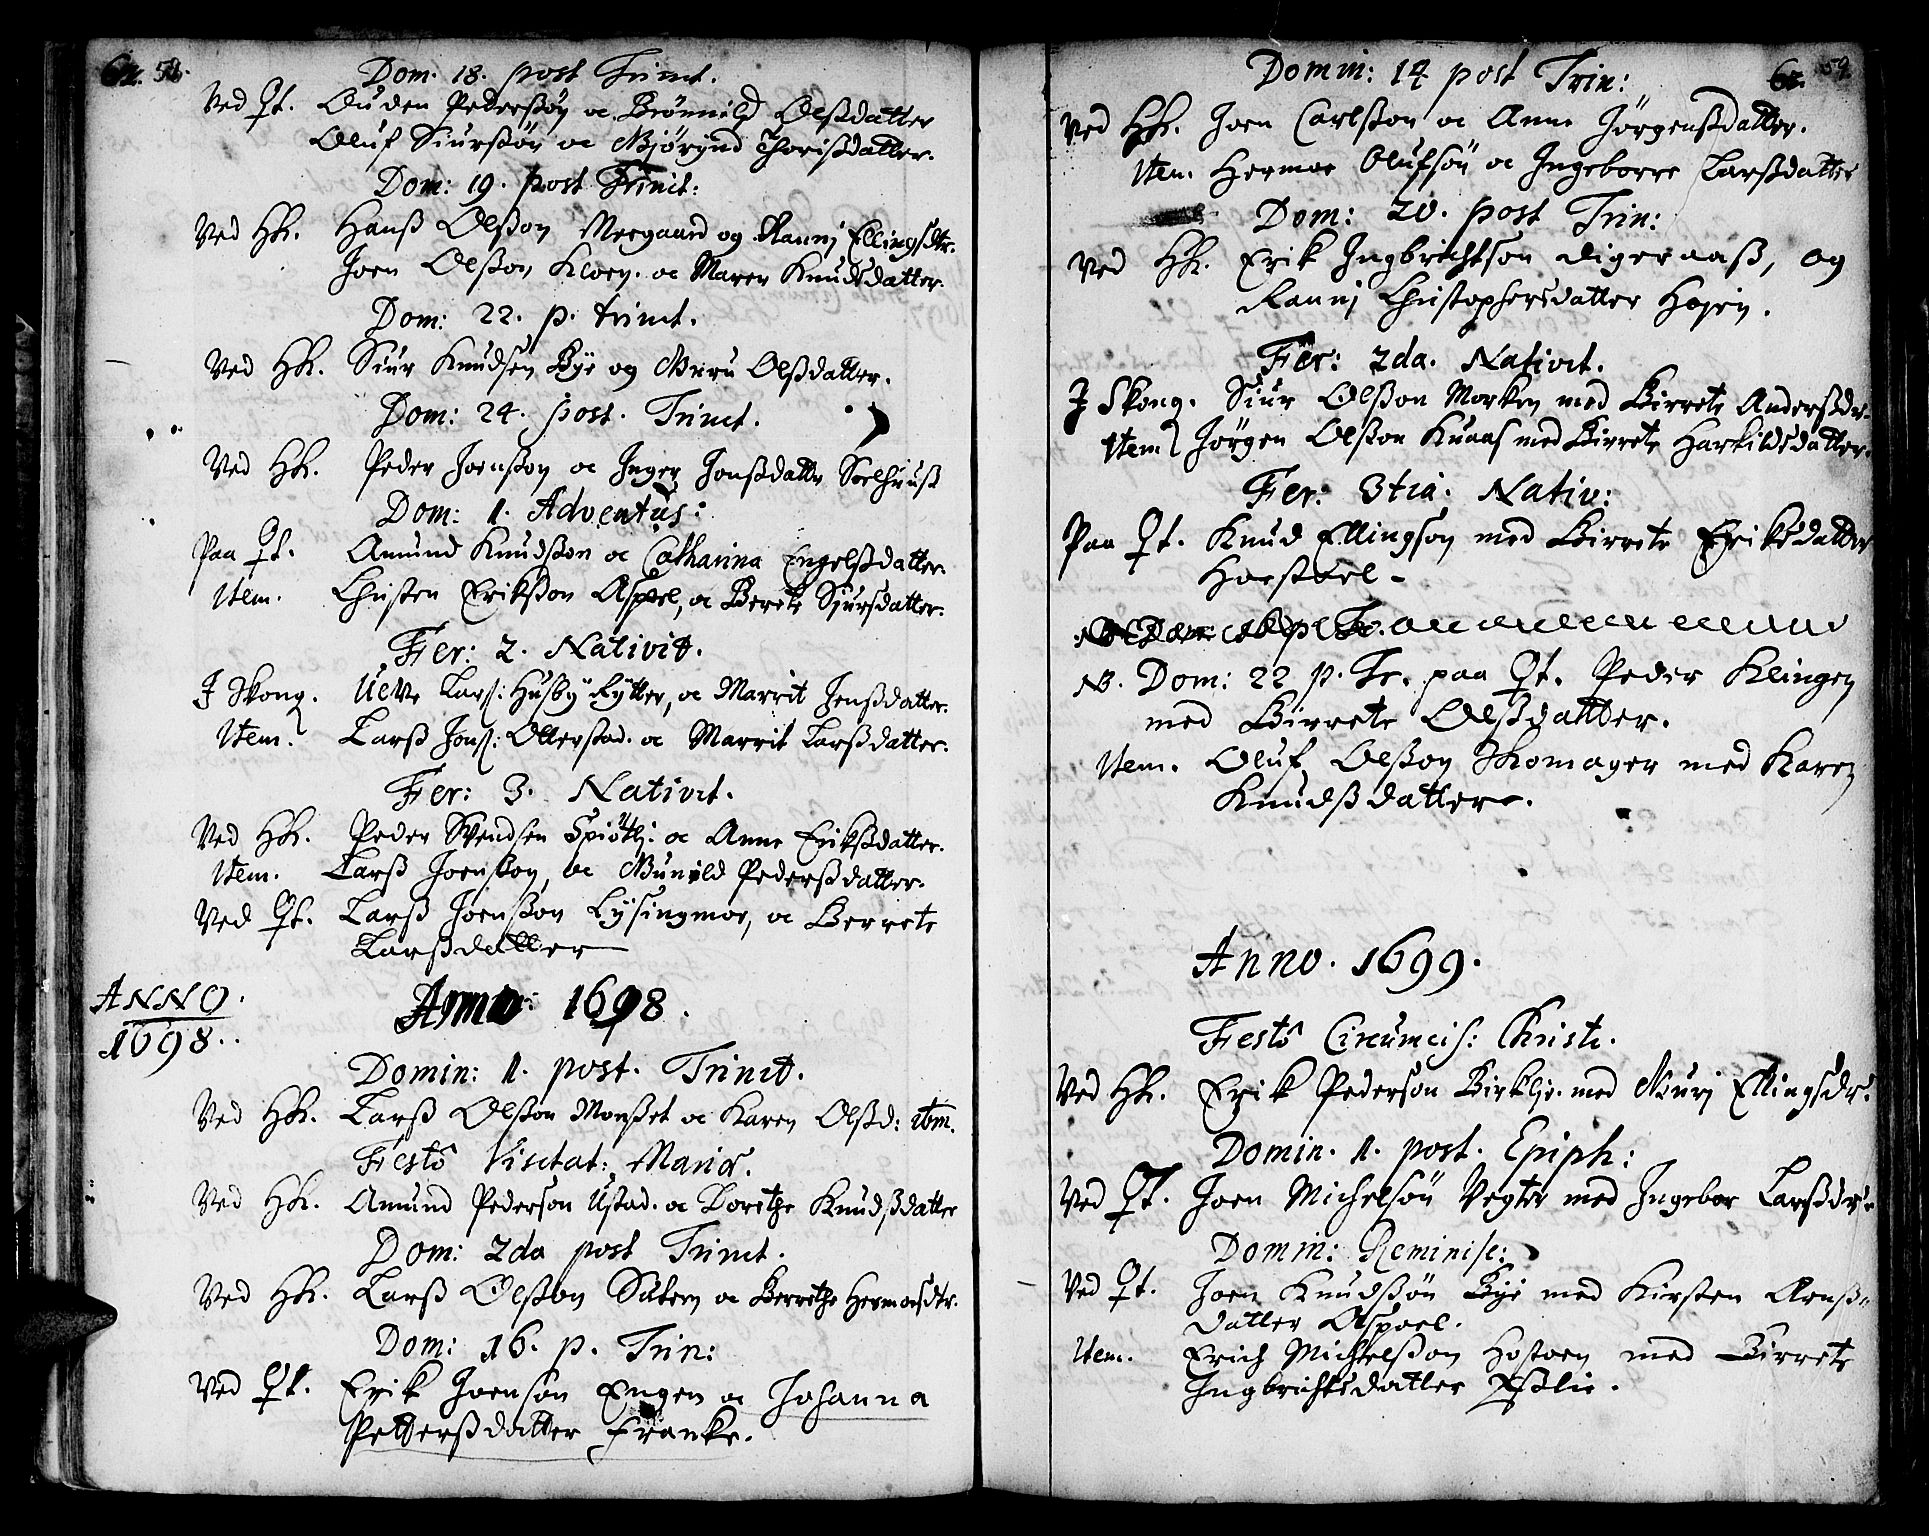 58.
Dom. 18. post Trinit.
Ved Qt. Ouden Pederßøn oc Brønnild Olßdatter
Oluf Siurßøn oc Thorißdatter.
Dom: 19. post Trinit:
Ved Hk. Hanß Olßon og Ranni Ellingsdtr.
Joen Olßon oc Maren Knudsdatter.
Dom: 22. p. trinit.
Ved Hk. Siur Knudsen Bye og Guru Olßdatter.
Dom: 24. post. Trinit.
Ved Hk. Peder Joenßon oc Inger Jonßdatter
Dom: 1. Adventus:
Paa Qt. Amund Knudßon oc Catharina Engelßdatter.
Item. Christen Erikßon Aspoel, oc Berete Sjursdatter.
Fer: 2. Nativit.
I Skong. Lars: Husby Rytter, oc Marrit Jenßdatter.
Item. Larß Jonß: Ollerstad. oc Marrit Larßdatter.
Fer: 3. Nativit.
Ved Hk. Peder Svendsen oc Anne Erikßdatter.
Item. Larß Joenßon, oc Gunild Pederßdatter.
Ved Qt. Larß Joenßon Lysingmoe, oc Berrete
Larßdatter
ANNO.
1698.
Anno: 1698.
Domin: 1. post. Trinit.
Ved Hk. Larß Olßon Monset oc Karen Olßd: ibm.
Festô Visitat: Mariæ.
Ved Hk. Amund Pederson Ustad. oc Dorethe Knudßdatter
Dom: 2da post Trinit.
Ved Hk. Larß Olßon Sætern oc Berrethe Hermoesdtr.
Dom: 16. p. Trin:
Ved Qt. Erik Joenson Engen oc Johanna
Petterßdatter Franke.
59.
Domin: 14 post Trin:
Ved Hk. Joen Carlßon oc Anne Jørgenßdatter.
Item. Hermoe Olufsøn oc Ingeborre Larßdatter
Dom: 20. post Trin:
Ved Hk. Erik Ingbrichtson Digeraaß, og
Ranni Christophersdatter Hojen.
Fer: 2da. Nativit.
I Skong. Siur Olßon Morken med Birrete Anderßdr.
Item Jørgen Olßon med Birrete Harkildsdatter.
Fer: 3tia. Nativ:
Paa Qt. Knud Ellingson med Birrete Eriksdatter
Hoestoel.
NB. Dom: 22 p. Tr. paa Qt. Peder Klingen
med Birrete Olßdatter.
Item. Oluf Olßon Skomager med Karen
Knudßdatter.
Anno. 1699.
Festô Circumcis: Christi.
Ved Hk. Erik Pederson med Guri Ellingsdr.
Domin. 1. post. Epiph:
Ved Qt. Joen Michelsøn Vegter med Ingebor Larßdr.
Domin: Reminisc:
Ved Qt. Joen Knudßøn Bye med Kirsten Arnß-
datter Aspoel.
Item. Erich Michelßon Hostoen med Birrete
Ingbrichtsdatter Eßlie.